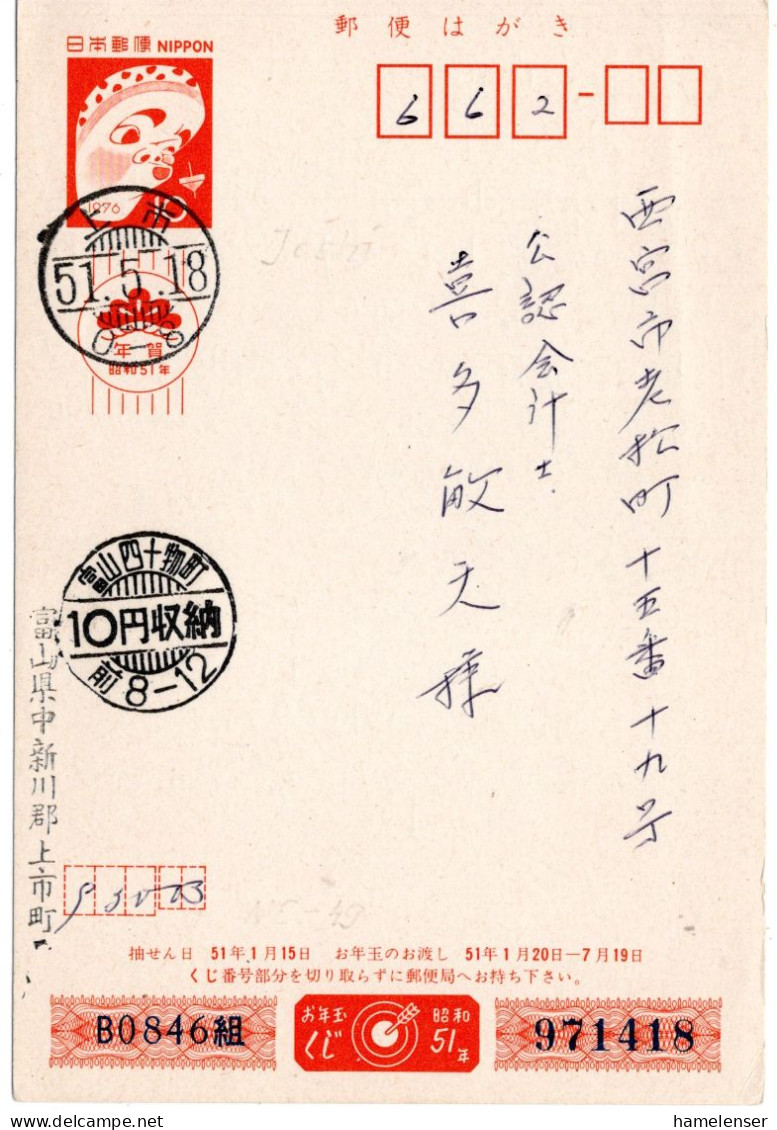 郵便はがき
日本郵便 NIPPON
1976
10
662
上市
51.5.18
0-8
年賀
昭和51年
Joshi
西宮市老松町十五番十九号
公認会計士
喜多敏夫様
富山四十物町
10円収納
前8-12
富山県中新川郡上市町
930-03
抽せん日 51年1月15日 お年玉のお渡し 51年1月20日—7月19日
くじ番号部分を切り取らずに郵便局へお持ち下さい。
B0846組
お年玉くじ
昭和51年
971418
hamelenser